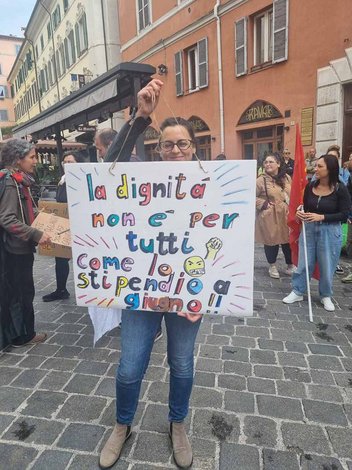 la dignità
non è per
tutti
Come lo
stipendio a
giugno!!